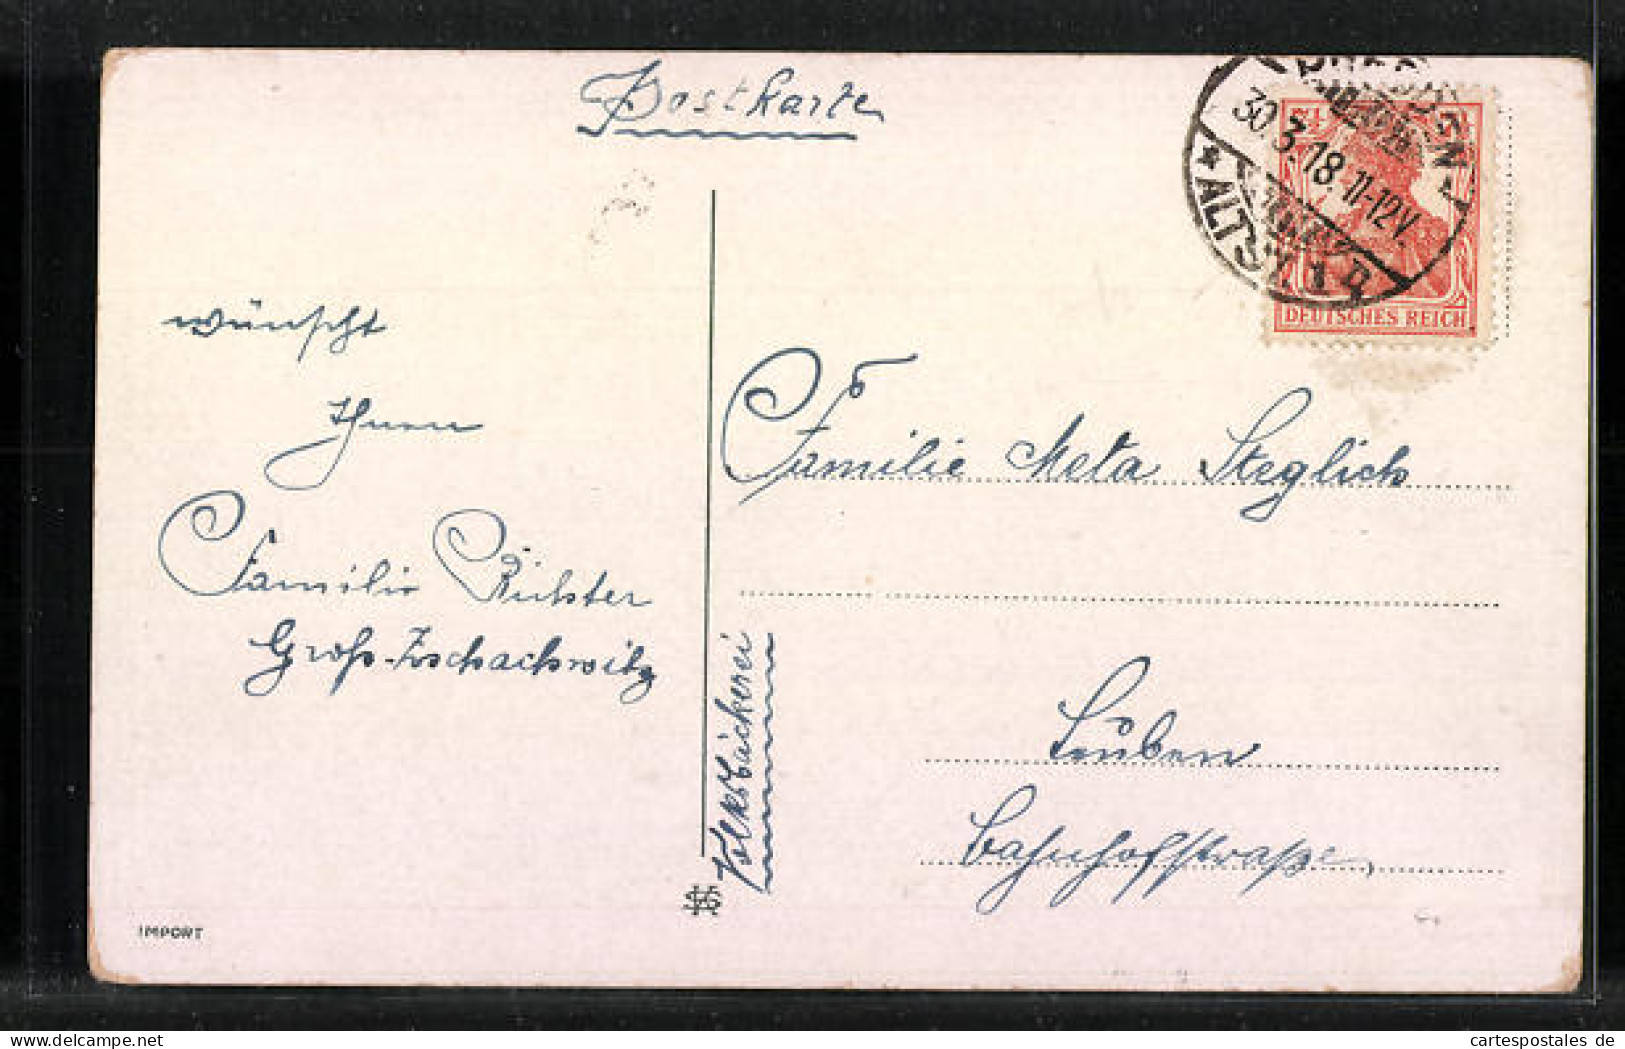 Postkarte
DRESDEN
30.3.18. 11-12V.
* ALTSTADT
DEUTSCHES REICH
wünscht
Ihnen
Familie Richter
Groß-Zschachwitz
Familie Meta Steglich
Leuben
Bahnhofstraße
Volksbäckerei
IMPORT
cartespostales de